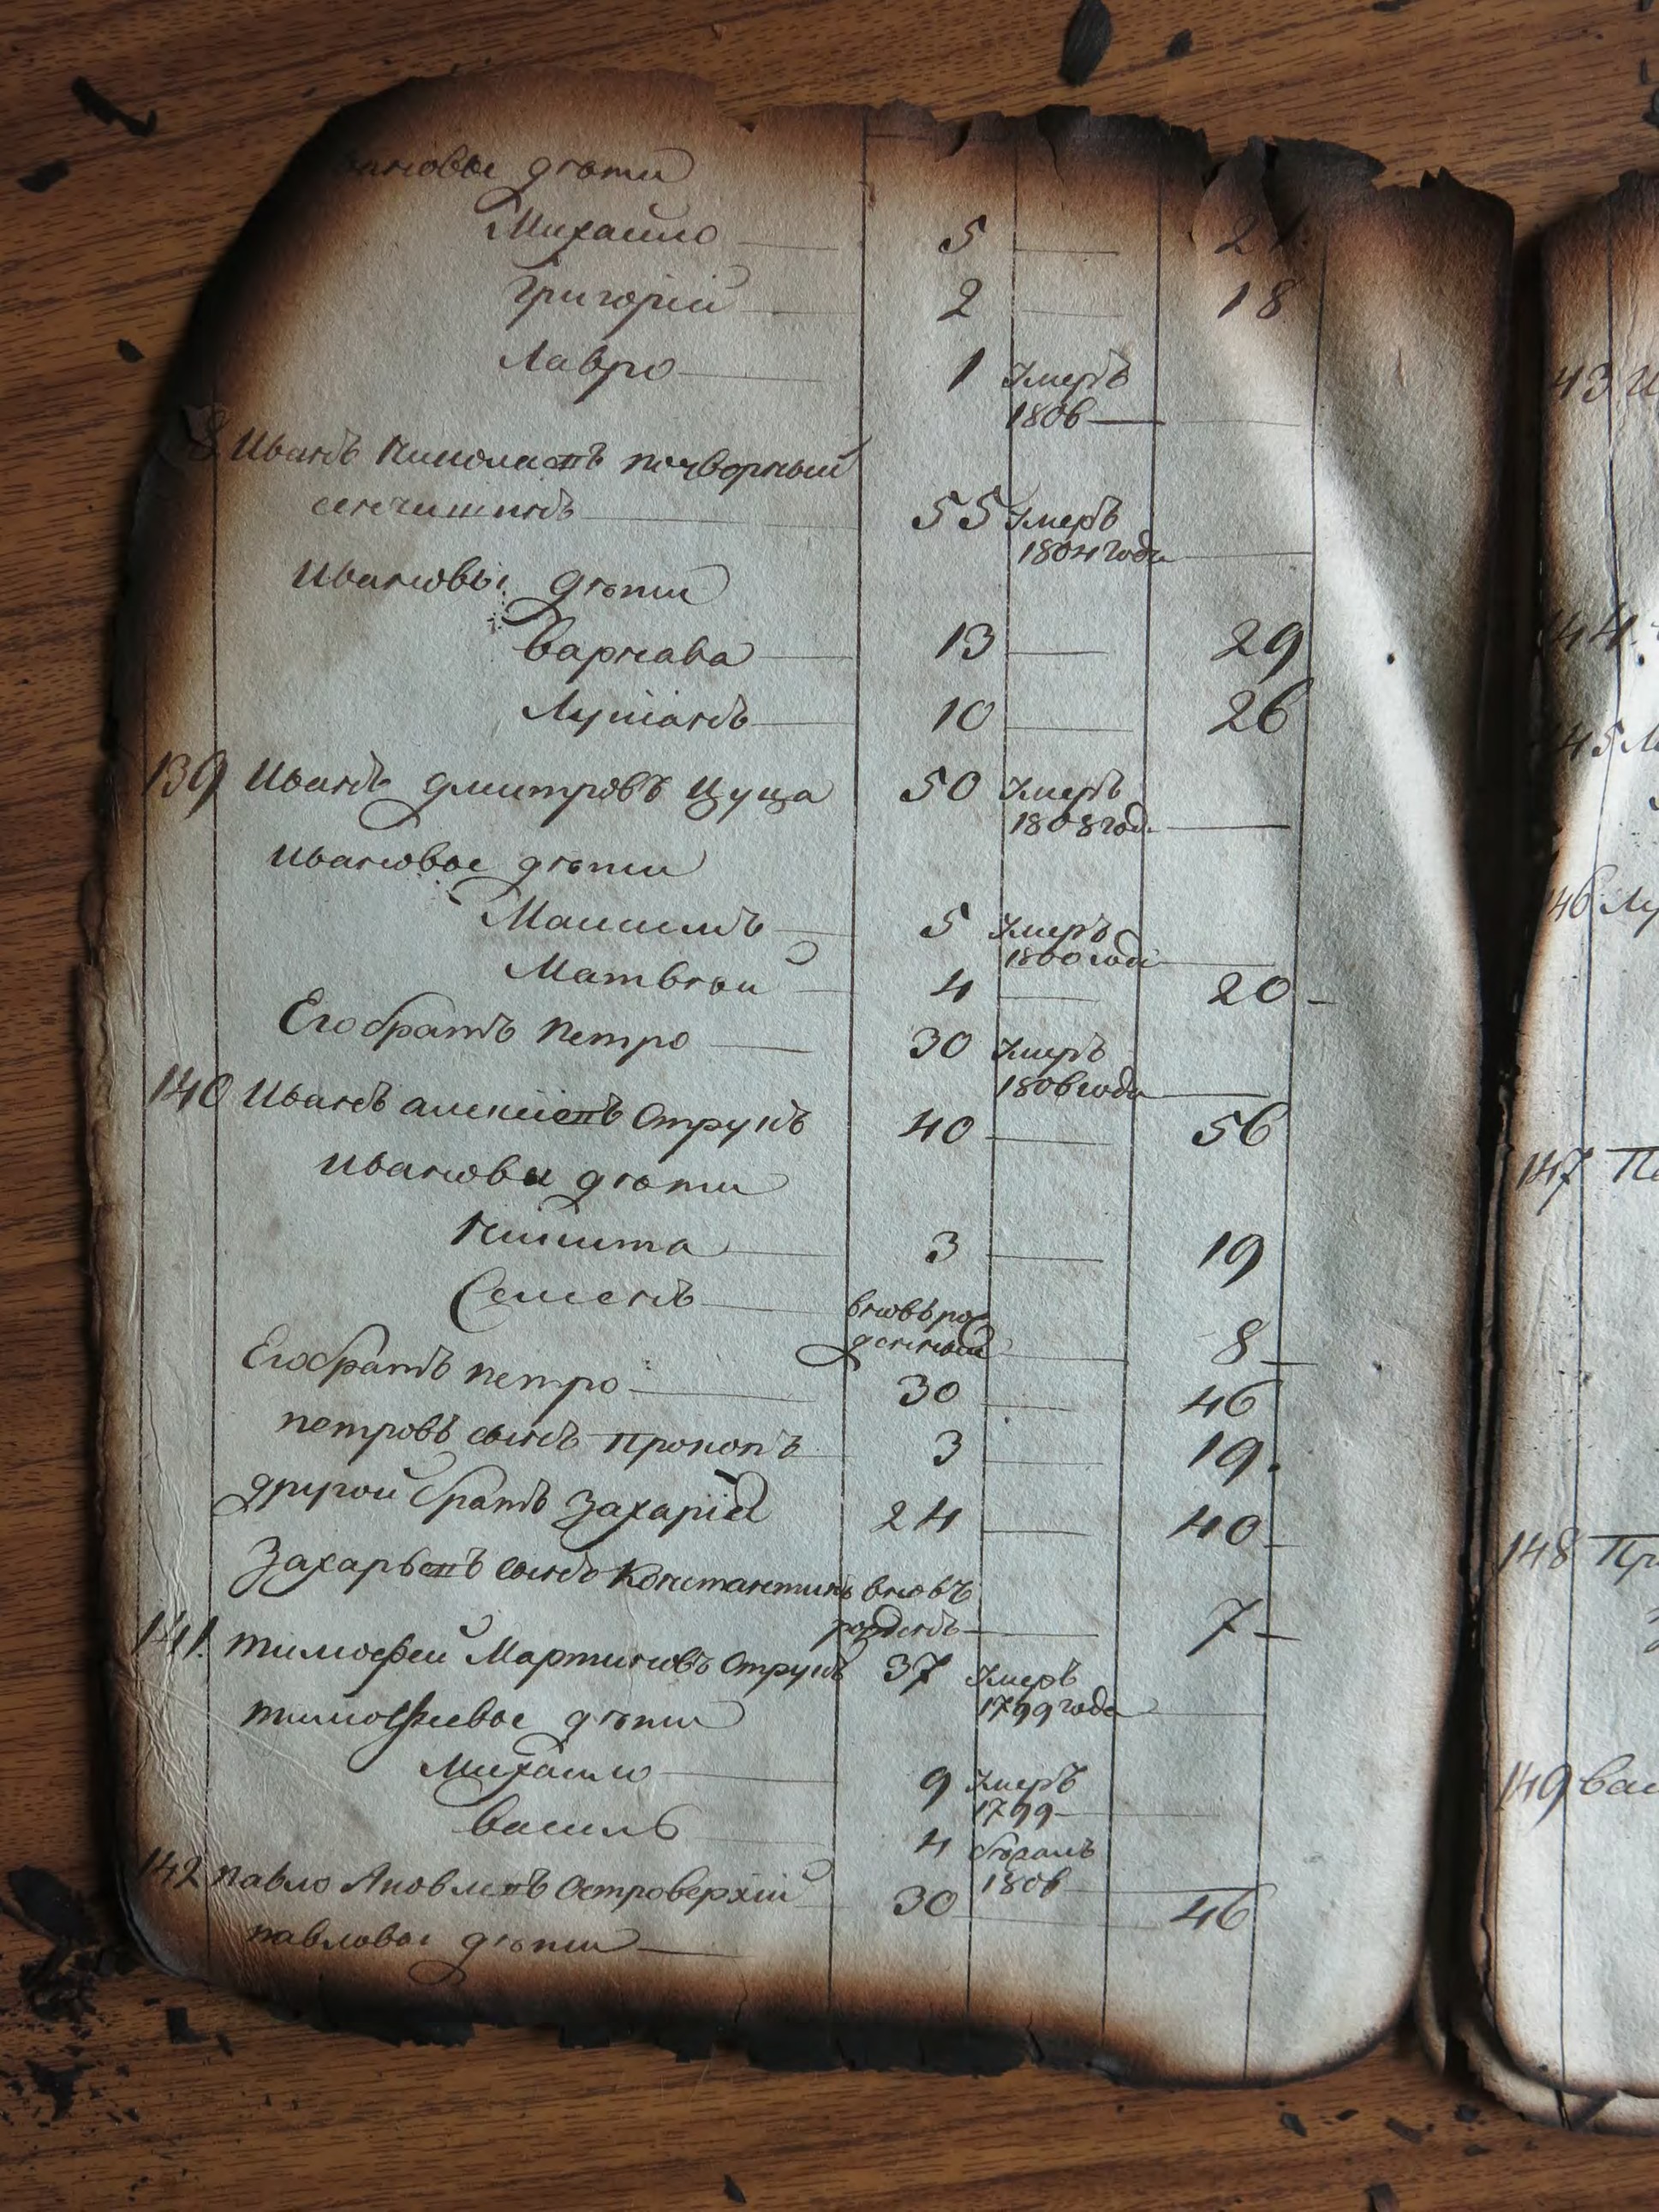 дѣти
Михайло 5 21
Григорій 2 18
Лавро 1 Умеръ
1806
8 Иванъ Николаевъ
55 Умеръ
1804 года
Ивановы дѣти
Варнава 13 29
Лукіанъ 10 26
139 Иванъ Дмитровъ Цуца 50 Умеръ
1808 год
Ивановы дѣти
Максимъ 5 Умеръ
1800 года
Матвѣй 4 20
Его братъ Петро 30 Умеръ
1806 года
140 Иванъ Алексіевъ Струкъ 40 56
Ивановы дѣти
Никита 3 19
Семенъ вновь рож
денный 8
Его братъ Петро 30 46
Петровъ сынъ Прокопъ 3 19.
другой братъ Захарій 24 40
Захарьевъ сынъ Константинъ вновь
рожденъ 7
141. Тимофей Мартиновъ Струкъ 37 Умеръ
1799 года
Тимофѣевы дѣти
Михайло 9 Умеръ
1799
Василь 4 бѣжалъ
1806
142 Павло Яковлевъ Островерхій 30 46
Павловы дѣти
43
44.
45
46
147
148
149